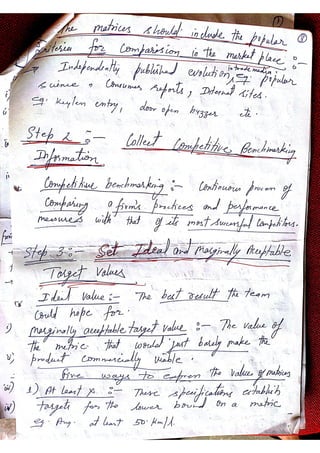 The matrices should include the popular
criteria for Comparision in the market place :
Independently published evolution, eg. popular
science, Consumer reports, Internet sites.
eg. Keyless entry, door open buzzer etc.
Step 2 :- Collect Competitive Benchmarking
Information
Competitive benchmarking :- Continuous process of
Comparing a firm's practices and performance
measures with that of its most successful Competitors.
Step 3 :- Set Ideal and Marginally Acceptable
Target Values
Ideal value :- The best result the team
could hope for.
marginally acceptable target value :- The value of
the metric that would just barely make the
product commercially viable.
Five ways to express the values of matrices
1) At least X :- These specifications establish
targets for the lower bound on a metric
eg. Avg. at least 50 km/l.